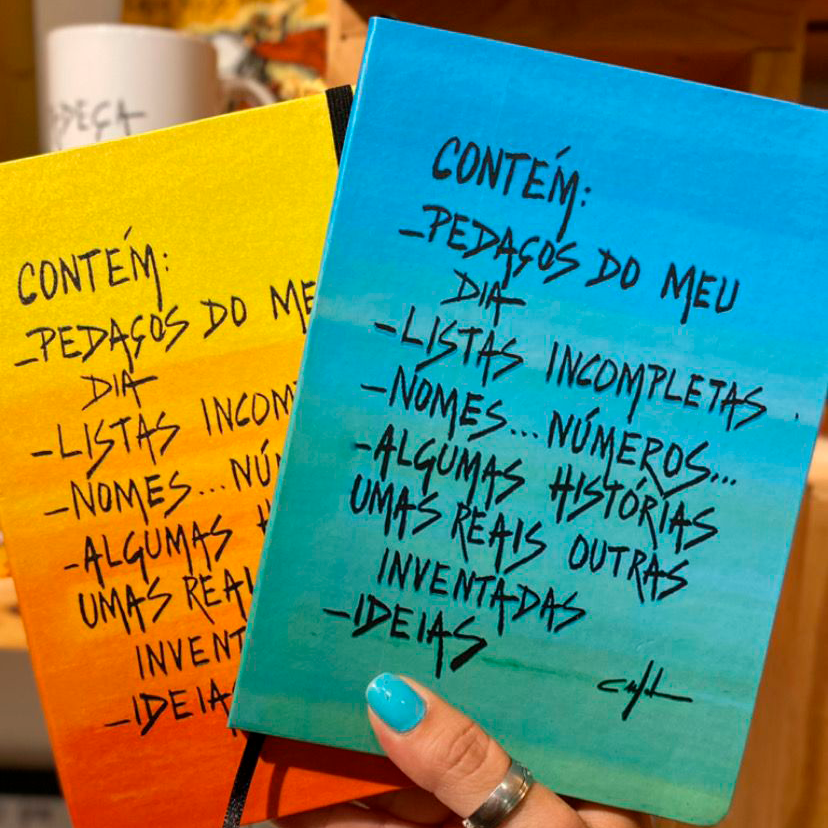 DEÇA
CONTÉM:
-PEDAÇOS DO ME
DIA
-LISTAS INCOM
-NOMES...NÚM
-ALGUMAS H
UMAS REAI
INVENT
-IDEIAS
CONTÉM:
-PEDAÇOS DO MEU
DIA
-LISTAS INCOMPLETAS.
-NOMES...NÚMEROS...
-ALGUMAS HISTÓRIAS
UMAS REAIS OUTRAS
INVENTADAS
-IDEIAS